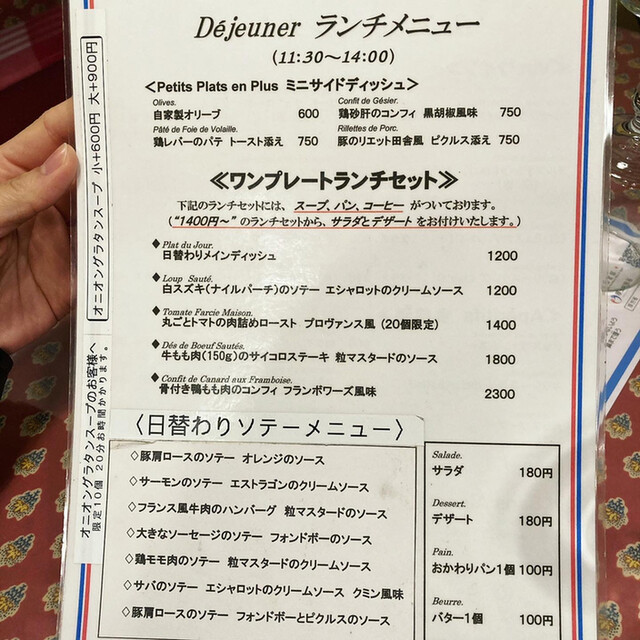 Déjeuner ランチメニュー
(11:30～14:00)
＜Petits Plats en Plus ミニサイドディッシュ＞
Olives.
自家製オリーブ 600
Confit de Gésier.
鶏砂肝のコンフィ 黒胡椒風味 750
Pâté de Foie de Volaille.
鶏レバーのパテ トースト添え 750
Rillettes de Porc.
豚のリエット田舎風 ピクルス添え 750
≪ワンプレートランチセット≫
下記のランチセットには、スープ、パン、コーヒー がついております。
(“1400円～” のランチセットから、サラダとデザート をお付けいたします。)
◆ Plat du Jour.
日替わりメインディッシュ 1200
◆ Loup Sauté.
白スズキ(ナイルパーチ)のソテー エシャロットのクリームソース 1200
◆ Tomate Farcie Maison.
丸ごとトマトの肉詰めロースト プロヴァンス風 (20個限定) 1400
◆ Dés de Boeuf Sautés.
牛もも肉(150g)のサイコロステーキ 粒マスタードのソース 1800
◆ Confit de Canard aux Framboise.
骨付き鴨もも肉のコンフィ フランボワーズ風味 2300
〈日替わりソテーメニュー〉
◇豚肩ロースのソテー オレンジのソース
◇サーモンのソテー エストラゴンのクリームソース
◇フランス風牛肉のハンバーグ 粒マスタードのソース
◇大きなソーセージのソテー フォンドボーのソース
◇鶏モモ肉のソテー 粒マスタードのクリームソース
◇サバのソテー エシャロットのクリームソース クミン風味
◇豚肩ロースのソテー フォンドボーとピクルスのソース
Salade.
サラダ 180円
Dessert.
デザート 180円
Pain.
おかわりパン1個 100円
Beurre.
バター1個 100円
オニオングラタンスープ 小+600円 大+900円
オニオングラタンスープのお客様へ
限定10個 20分お時間かかります。